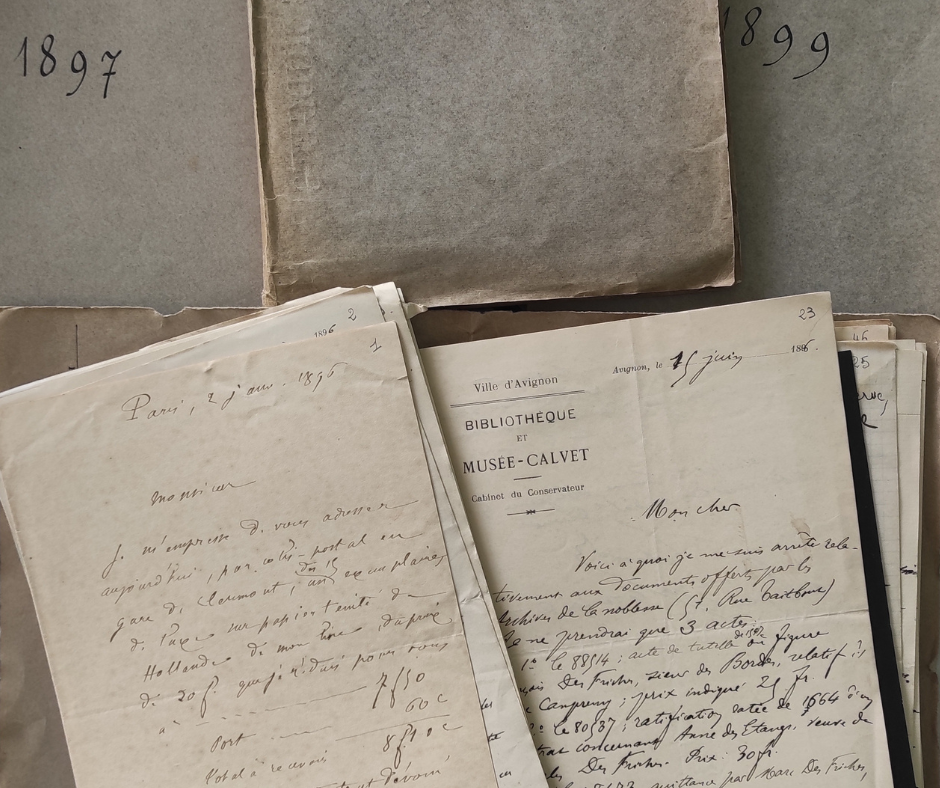 1897
1899
1896
2
1
Paris, 2 janv. 1896
Monsieur
Je m'empresse de vous adresser
aujourd'hui, par colis-postal en
gare de Clermont, un exemplaire
de luxe sur papier teinté de
Hollande de mon livre, du prix
de 20 f. que je réduis pour vous
à 7f50
Port 60c
Total à recevoir 8f10c
23
Ville d'Avignon
BIBLIOTHÈQUE
ET
MUSÉE-CALVET
Cabinet du Conservateur
Avignon, le 15 juin 1896.
Mon cher
Voici à quoi je me suis arrêté rela-
tivement aux documents offerts par les
Archives de la noblesse (57, Rue Taitbout)
Je ne prendrai que 3 actes:
1° le 88514; acte de tutelle où figure
Des Friches, sieur des Bordes, relatif à
Campremy; prix indiqué 25 fr.
2° le 80587; ratification datée de 1664 d'un
concernant Anne des Etangs, veuve de
Des Friches. Prix: 30 fr.
quittance par Marc Des Friches,
46
25